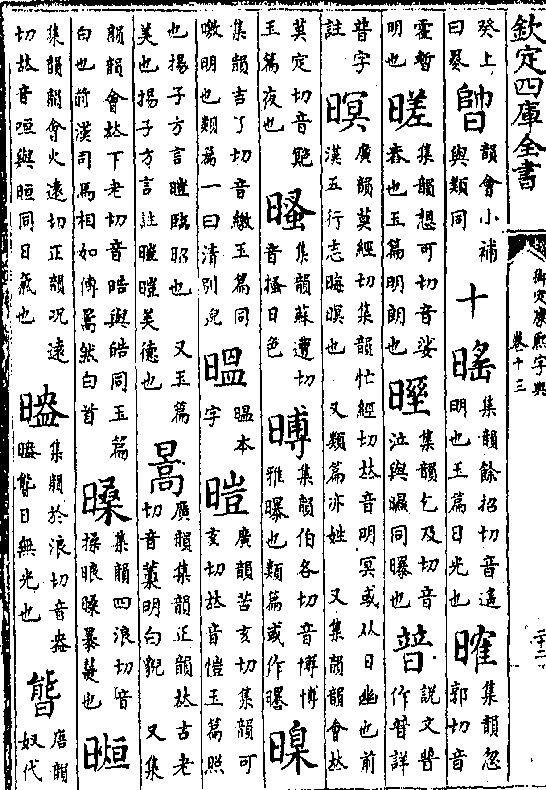 欽定四庫全書
御定康熙字典
卷十三
二十二
癸上
曰晷
韻會小補
與類同
十
暚
集韻餘招切音遙
明也玉篇日光也
㬦
集韻忽
郭切音
霍暫
明也
集韻想可切音娑
春也玉篇明朗也
集韻乞及切音
泣與㬤同曝也
朁
說文朁
作朁詳
普字
註
暝
廣韻莫經切集韻忙經切𠀤音明冥或从日幽也前
漢五行志晦暝也 又類篇亦姓 又集韻韻會𠀤
莫定切音䀎
玉篇夜也
集韻蘇遭切
音搔日色
㬍
集韻伯各切音博博
雅曝也類篇或作㬥
暤
集韻吉了切音繳玉篇同
皦明也類篇一曰清別皃
暝本
字
暟
廣韻苦亥切集韻可
亥切𠀤音愷玉篇照
也揚子方言暟臨昭也 又玉篇
美也揚子方言註暟暟美德也
暠
廣韻集韻正韻𠀤古老
切音藁明白貌 又集
韻韻會𠀤下老切音皓與皓同玉篇
白也前漢司馬相如傳暠然白首
集韻四浪切音
喪暴䕼也
集韻韻會火遠切正韻况遠
切𠀤音咺與晅同日氣也
集韻於浪切音盎
日無光也
唐韻
奴代